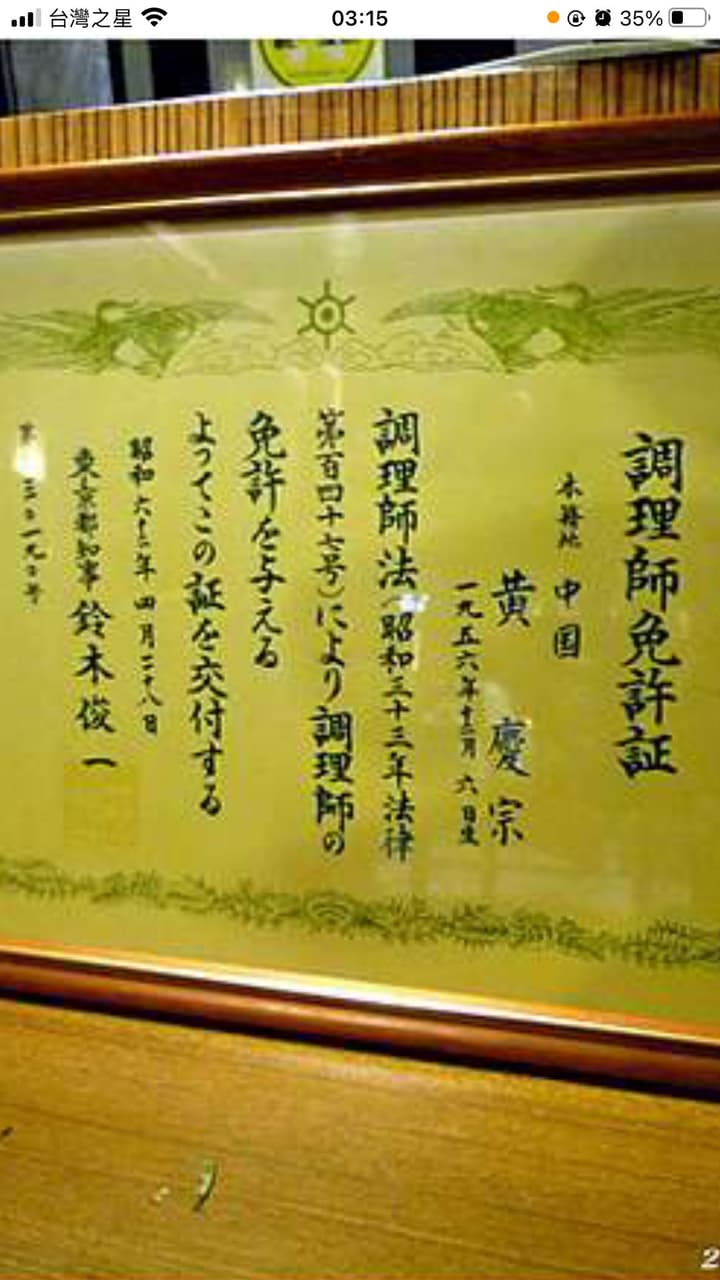 台灣之星
03:15
35%
調理師免許証
本籍地 中国
黄 慶宗
一九五六年十二月 六日生
調理師法（昭和三十三年法律
第百四十七号）により調理師の
免許を与える
よってこの証を交付する
昭和六十二年四月二十八日
東京都知事 鈴木俊一
2